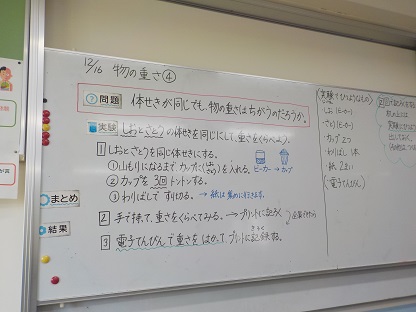 12/16 物の重さ④
?問題 体せきが同じでも、物の重さはちがうのだろうか。
実験 しおとさとうの体せきを同じにして、重さをくらべよう。
1 しおとさとうを同じ体せきにする。
①山もりになるまで、カップに を入れる。 ビーカー → カップ
②カップを3回トントンする。
③わりばしですり切る。 → 紙は集めに行きます。
2 手で持って、重さをくらべてみる。 → プリントに記ろく
3 電子てんびんで重さをはかって、プリントに記録する。
まとめ
結果
(実験でひつようなもの)
・しお(ビーカー)
・さとう(ビーカー)
・カップ2つ
・わりばし 1本
・紙 2まい
(電子てんびん)